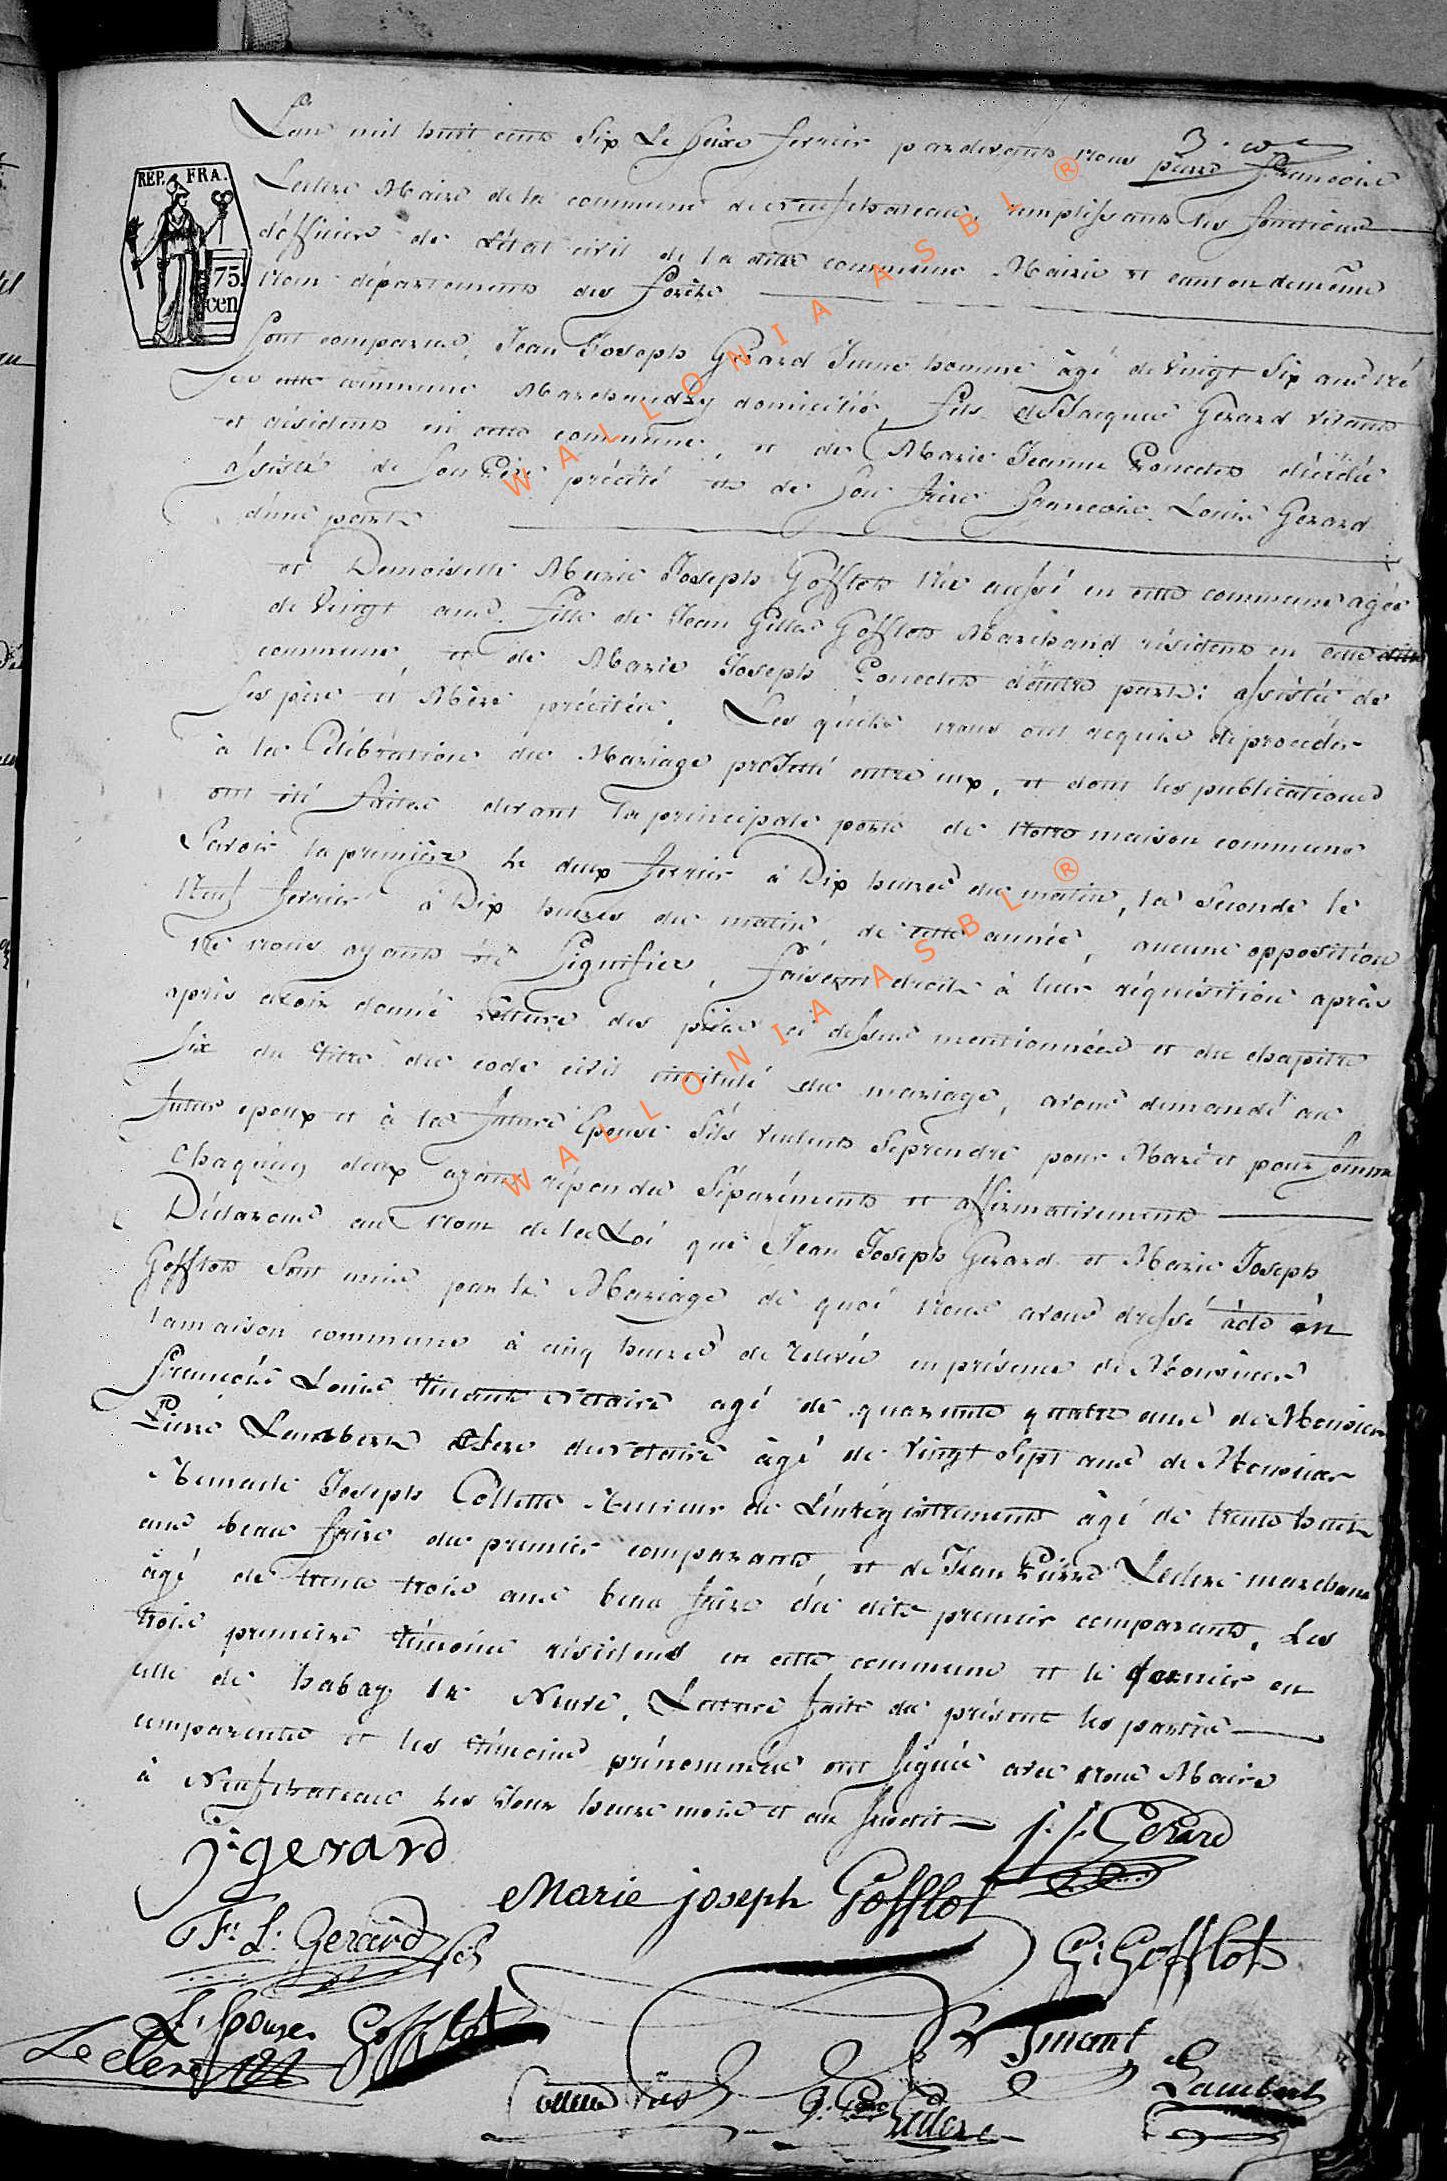 3. w
L'an mil huit cents Six Le Seize fevrier pardevants nous pierre Francois
REP. FRA.
75. cen
Leclerc Maire de la commune de neufchateau, remplissants les fonctions
d'officier de L'état civil de la ditte commune Mairie et canton de même
Nom département des forêts
Sont comparus, Jean Joseph Gerard Jeune homme âgé de Vingt Six ans né
en cette commune Marchand y domicilié, fils de Jacques Gerard vivants
et résidents en cette commune, et de Marie Jeanne Poncelet décédée
assisté de Son Père précité et de Son frère Francois Louis Gerard
d'une part
et Demoiselle Marie Joseph Gofflot Née aussi en cette commune agée
de Vingt ans fille de Jean Gilles Gofflot Marchand résidents en cette ditte
commune, et de Marie Joseph Poncelet d'autre part: assistée de
Ses père et Mère précités. Les quels nous ont requis de procéder
à la Célébration du Mariage projetté entre eux, et dont les publications
ont été faites devant la principale porte de Notre maison commune
Savoir la première le deux fevrier à Dix heures du matin, la Seconde le
Neuf fevrier à Dix heures du matin, de cette année, aucune opposition
Ne nous ayants été Signifiée, faisant droit à leur réquisition après
après avoir donné lecture des pièces ci dessus mentionnées et du chapitre
Six du titre du code civil intitulé du mariage, avons demandé au
futur epoux et à la future Epouse S'ils veulents Se prendre pour Mari et pour femme
Chaqu'un d'eux ayant répondu Séparéments et affirmativements
Déclarons au Nom de la Loi que Jean Joseph Gerard et Marie Joseph
Gofflot Sont unis par le Mariage de quoi Nous avons dressé acte en
la maison commune à cinq heures de relevée en présence de Monsieur
Francois Louis Tinant Notaire agé de quarante quatre ans de Monsieur
Pierre Lambert Clerc de Notaire âgé de Vingt Sept ans de Monsieur
Joseph Collette Receveur de L'enrégistrements âgé de trente huit
ans beau frère du premier comparants, et de Jean Pierre Leclerc marchand
âgé de trente trois ans beau frère du dite premier comparants, Les
trois premiers témoins résidents en cette commune et le dernier en
celle de habay la Neuve, Lecture faite du présent les parties
comparentes et les témoins prénommés ont Signés avec nous Maire
à Neufchateau les Jour heure mois et an Susdit
j: gerard
j. j. Gerard
Marie joseph Gofflot
F: L: Gerard fils
G: Gofflot
L'epouse Gofflot
Tinant
Leclerc
Lambert
J: Pierre Leclerc
WALLONIA ASBL ®
WALLONIA ASBL ®